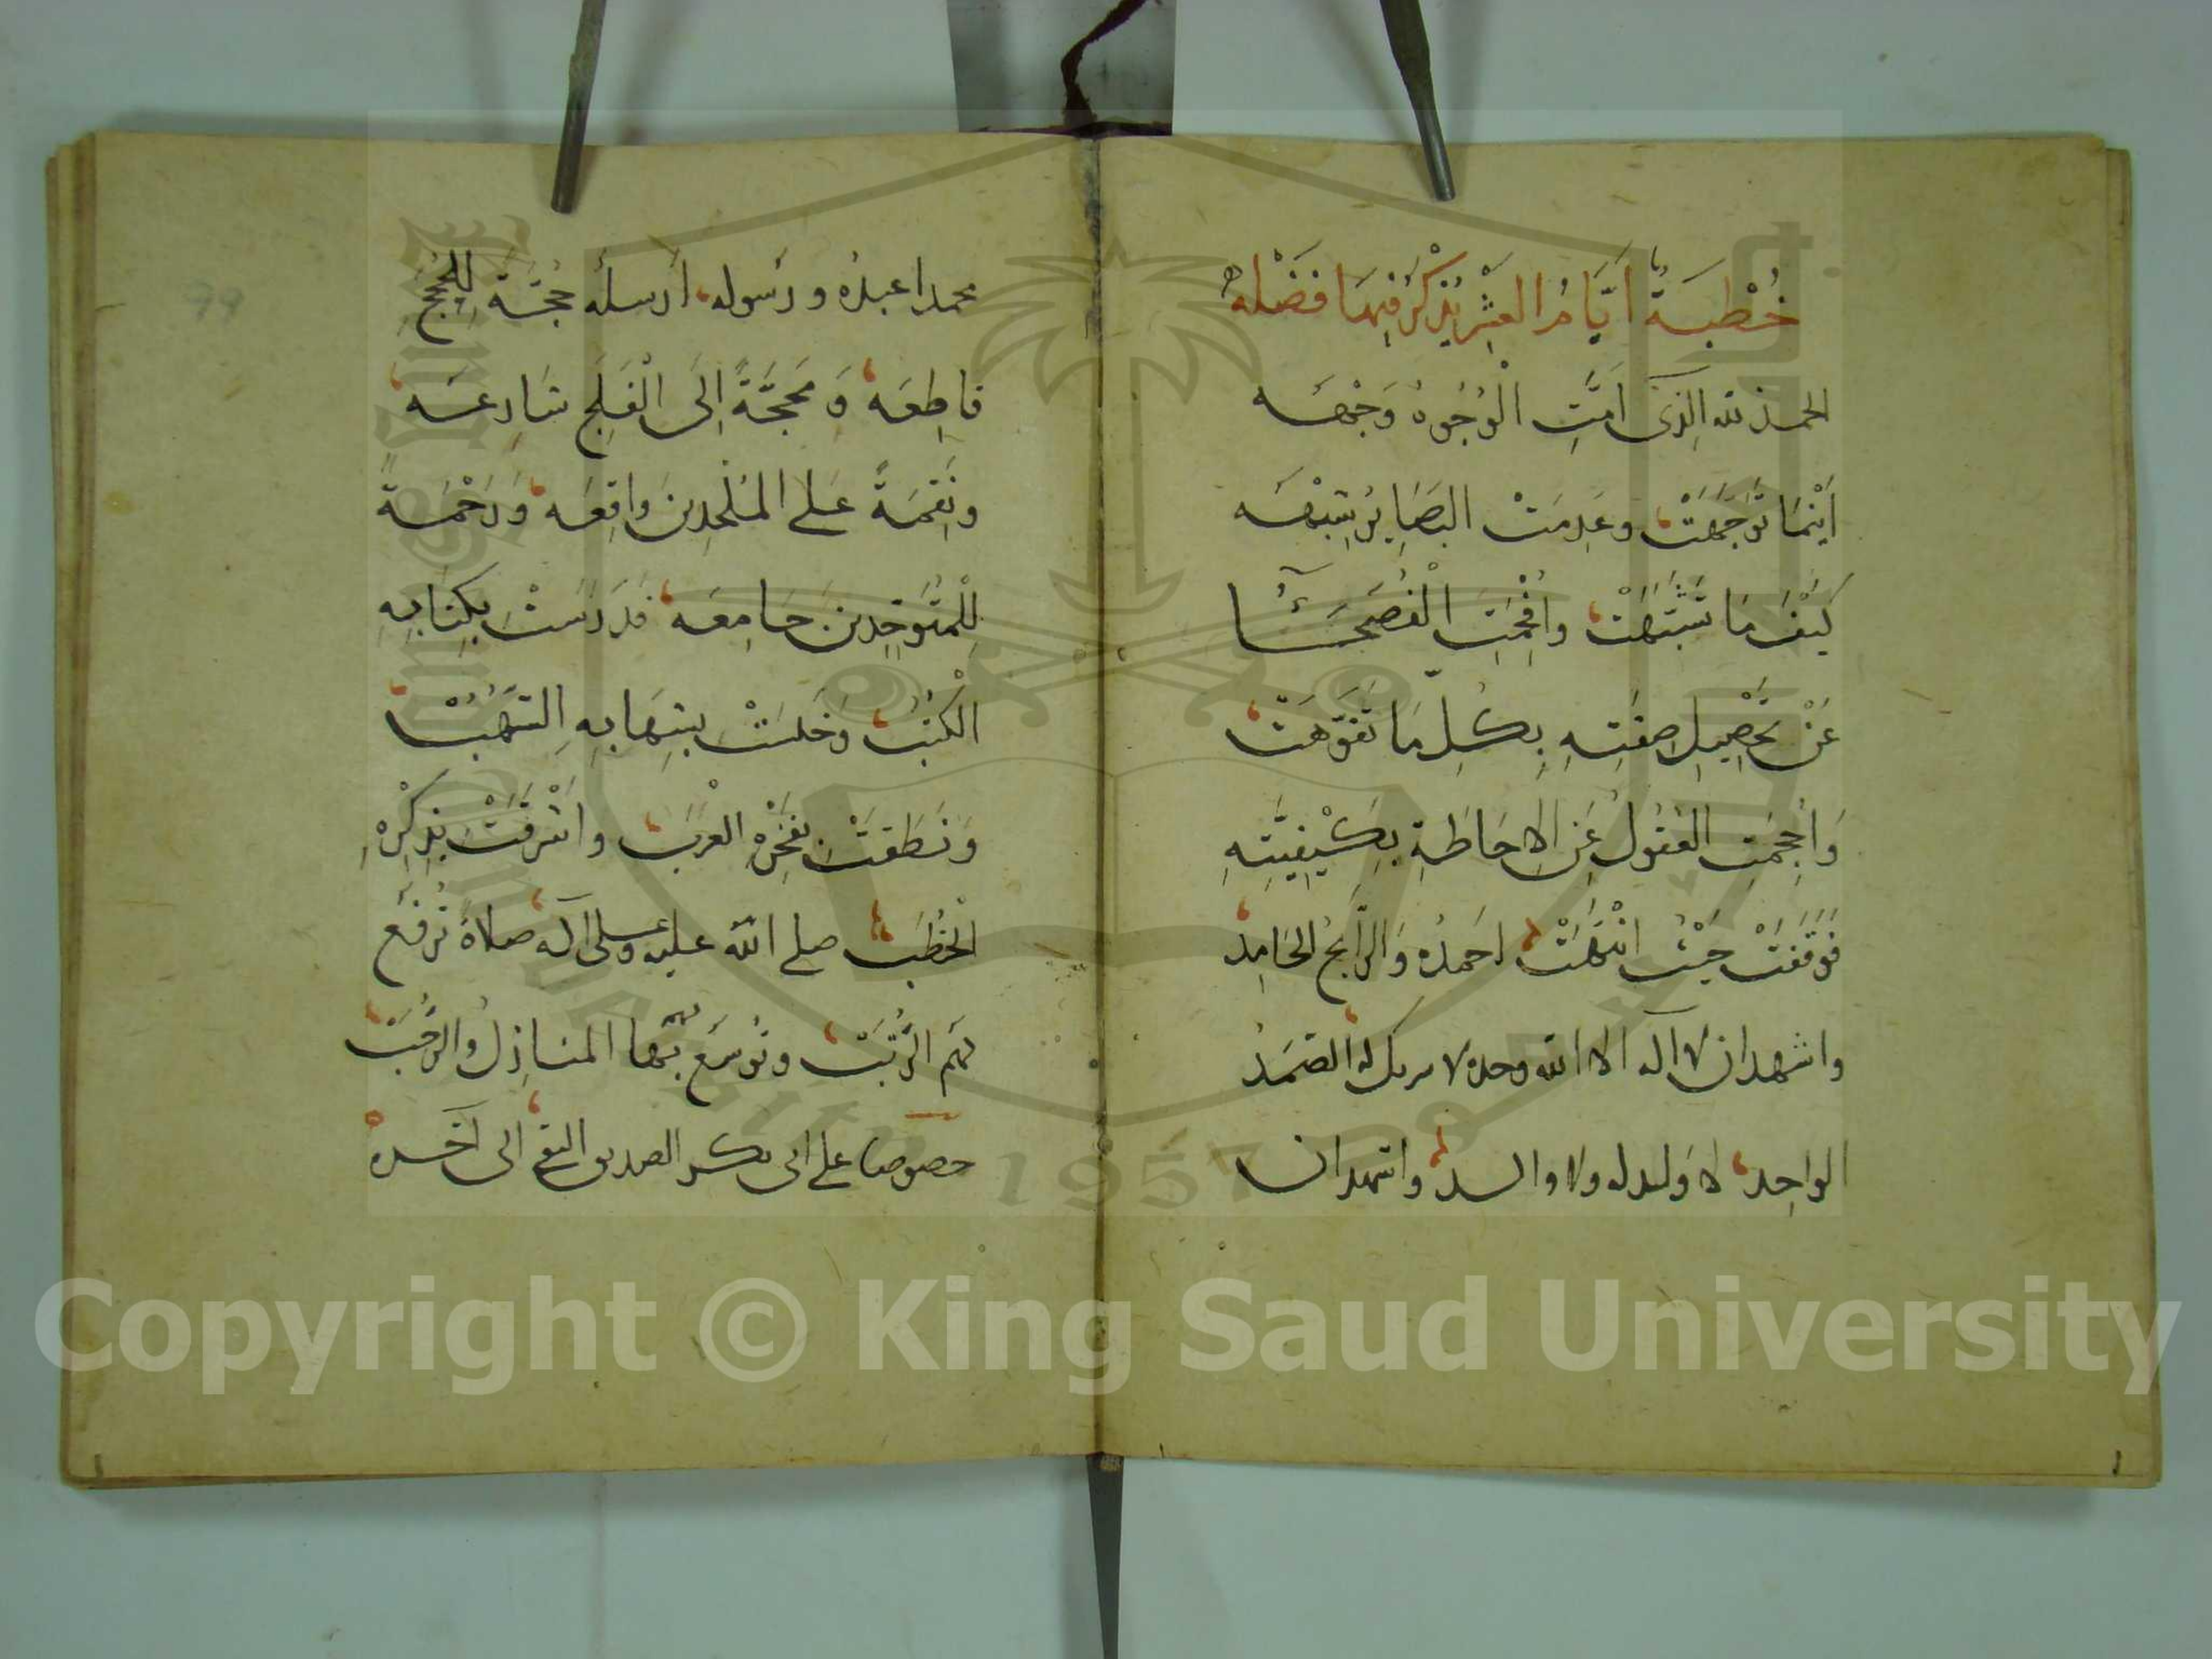 خُطْبَةُ اَيَّامِ العَشْرِ يُذْكَرُ فِيهَا فَضْلُه
الحمد لله الذي اَمَّتِ الْوُجُوهُ وَجْهَه
اَيْنَمَا تَوَجَّهَتْ وعَدِمَتْ البَصَايِرُ شِبْهَه
كَيْفَ مَا تَشَبَّهَتْ وافْحِمَتِ الْفُصَحَآءُ
عَنْ تَحْصِيلِ صِفَتِهِ بِكُلِّ مَا تَفَوَّهَتْ
وَاُحْجِمَتِ العُقُولُ عَنِ الاِحَاطَةِ بِكَيْفِيَّتِهِ
فَوَقَفَتْ حَيْثُ انْتَهَتْ احمدُه وَالرَّابِحُ الحَامِدُ
واشهد ان لا اله الا الله وحده لا شريك له الصَّمَدُ
الواحِد لا وَلد له ولا والد واشهد ان
محمدا عبدُه ورَسوله اَرسله حُجَّةً لِلحُجَجِ
قاطِعَه وَمَحَجَّةً اِلَى الْفَلَجِ شَارِعَه
ونَقِمَةً عَلى المُلْحِدِينَ واقِعَه وَرَحْمَةً
لِلْمُتَوَحِّدِينَ جَامِعَه فَدَرَسَتْ بِكِتَابِهِ
الْكُتُب وَخَلَسَتْ بِشِهَابِهِ الشُّهُبْ
وَنَطَقَتْ بِفَخْرِهِ العَرَب واشْرَقَتْ بِذِكْرِهِ
الْخُطَب صلى الله عليه وعلى آله صلاةً تُرْفَعُ
لهم الرُّتَبْ وتُوسَع بها المنازِلُ والرُّحَبْ
خصوصا على ابى بكر الصديق التقى الى آخَره
99
Copyright © King Saud University
1957